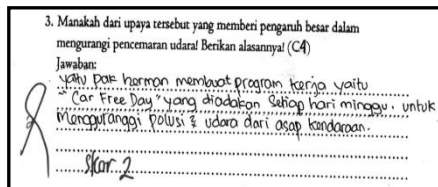 3. Manakah dari upaya tersebut yang memberi pengaruh besar dalam
mengurangi pencemaran udara! Berikan alasannya! (C4)
Jawaban:
yaitu pak herman membuat program kerja yaitu
"Car Free Day" yang diadakan setiap hari minggu. untuk
Mengguranggi polusi z udara dari asap kendaraan.
Skor 2